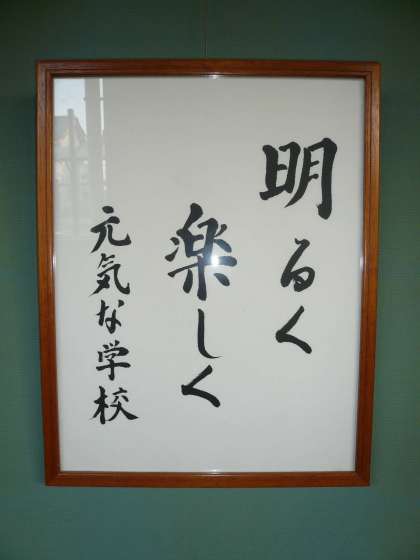 明るく
楽しく
元気な学校